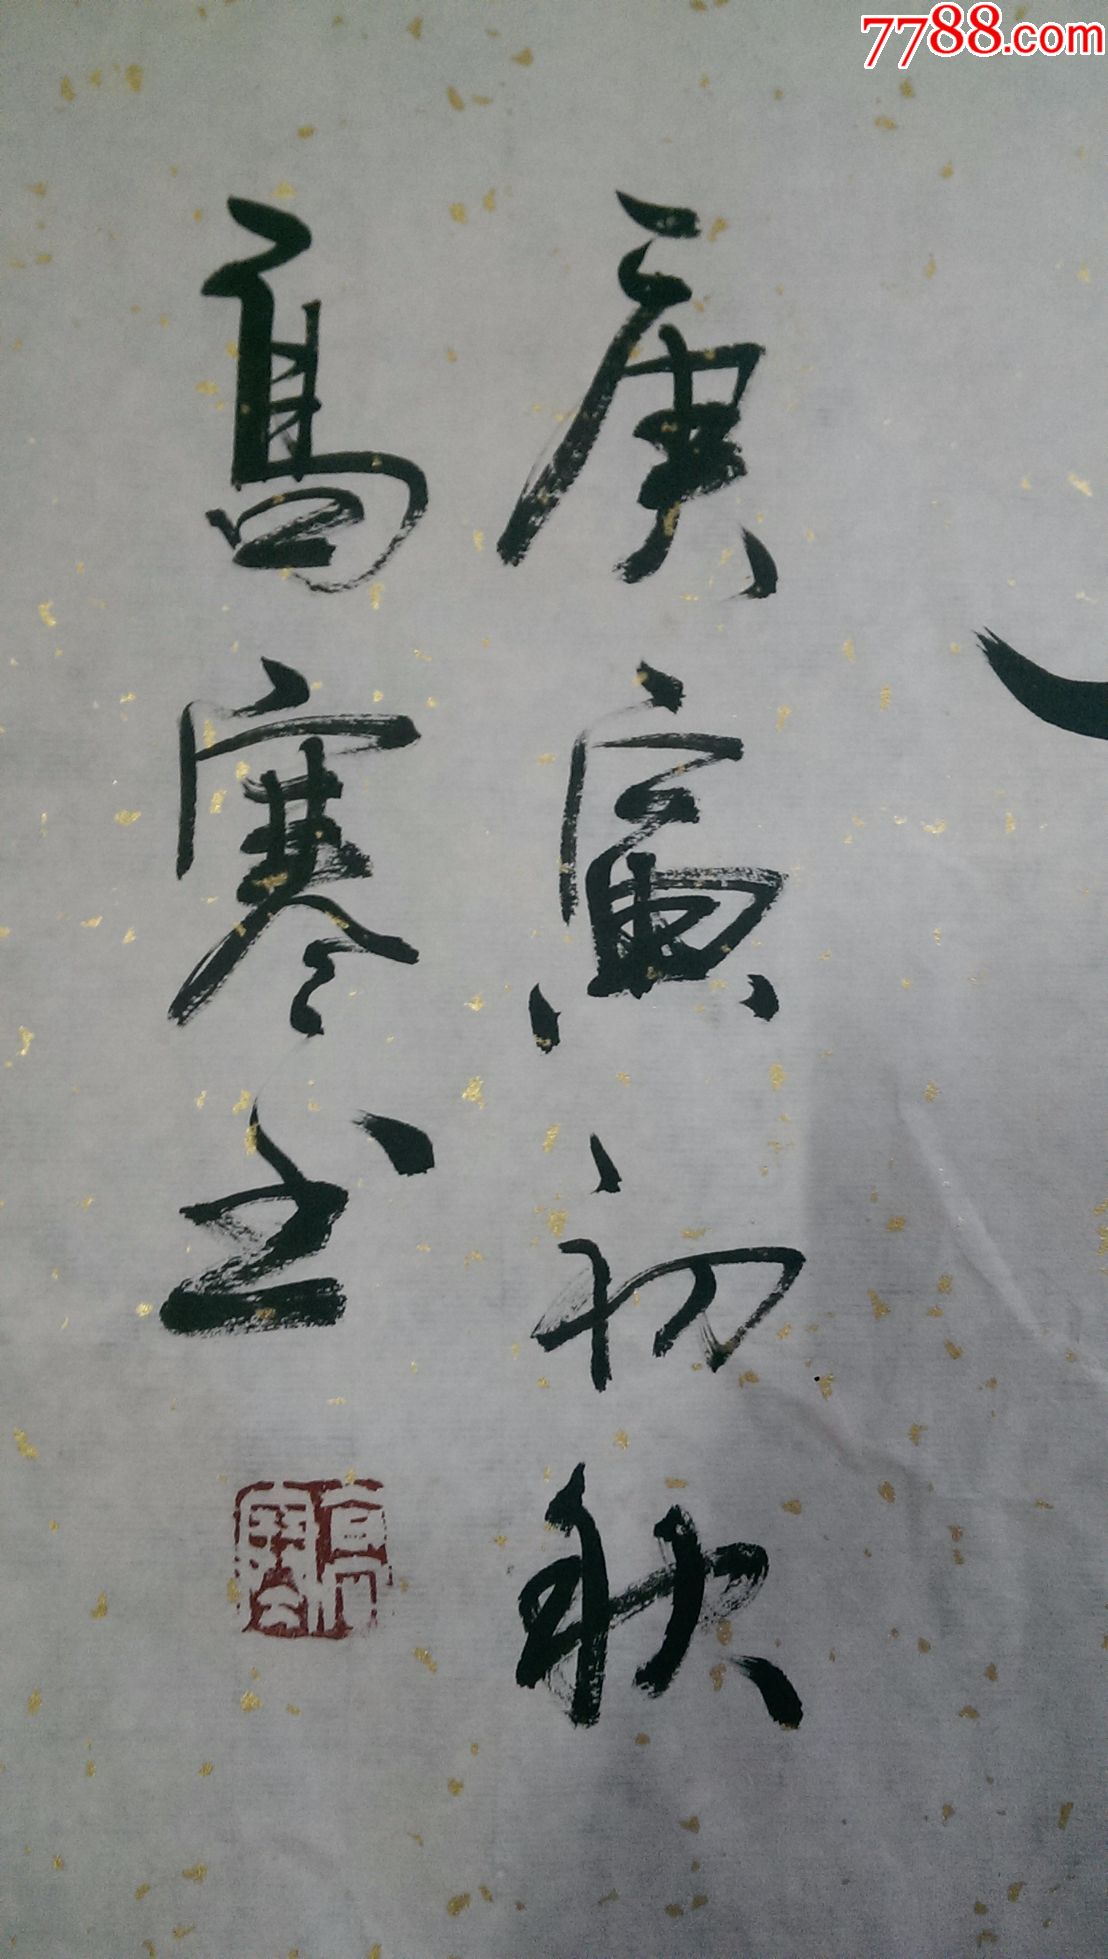 7788.com
庚寅初秋
高寒书
高寒